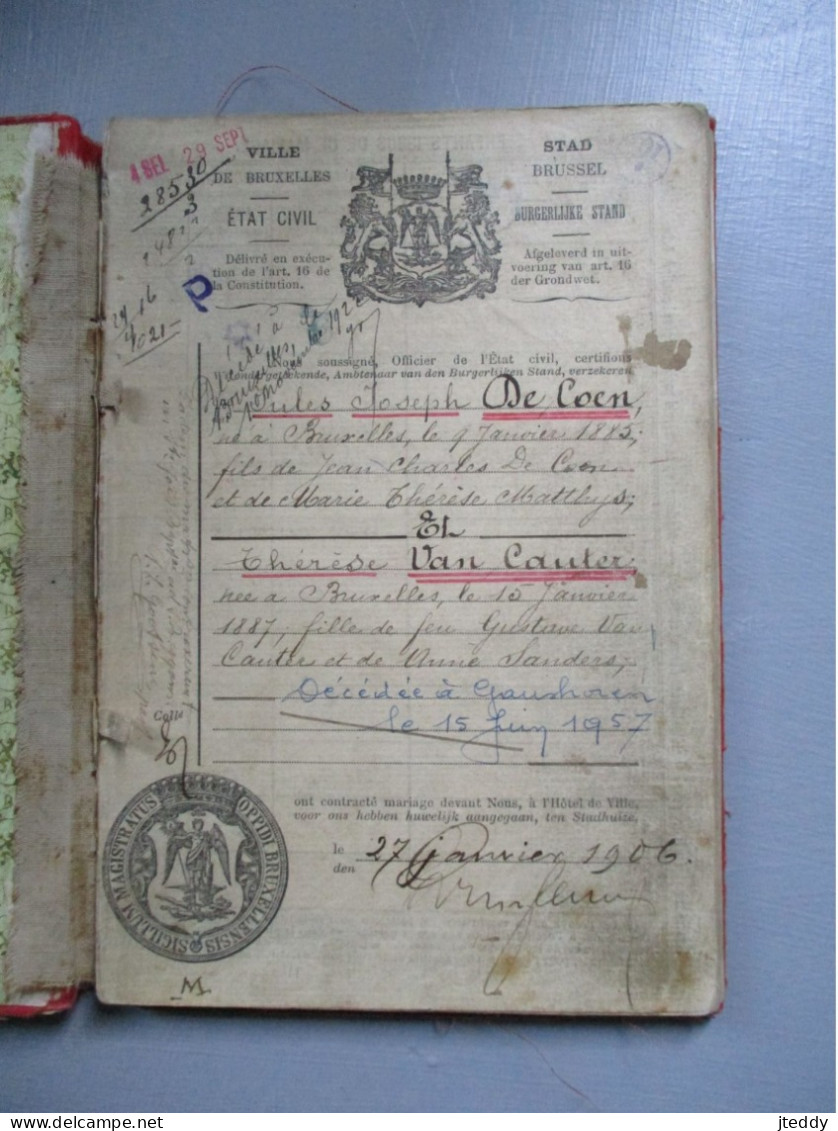 4 SEL 29 SEPT
28530
3
VILLE
DE BRUXELLES
ÉTAT CIVIL
Délivré en exécu-
tion de l'art. 16 de
la Constitution.
STAD
BRUSSEL
BURGERLIJKE STAND
Afgeleverd in uit-
voering van art. 16
der Grondwet.
P
Nous soussigné, Officier de l'État civil, certifions
Ambtenaar van den Burgerlijken Stand, verzekeren
Jules Joseph De Coen,
né à Bruxelles, le 9 Janvier 1885;
fils de Jean Charles De Coen
et de Marie Thérèse Matthys;
Et
Thérèse Van Cauter,
née à Bruxelles, le 15 Janvier
1887, fille de feu Gustave Van
Cauter et de Anne Sanders;
Décédée à Ganshoren
le 15 Juin 1957
ont contracté mariage devant Nous, à l'Hôtel de Ville,
voor ons hebben huwelijk aangegaan, ten Stadhuize,
le
den
27 janvier 1906.
SIGILLUM MAGISTRATUS OPPIDI BRUXELLENSIS
M
jteddy